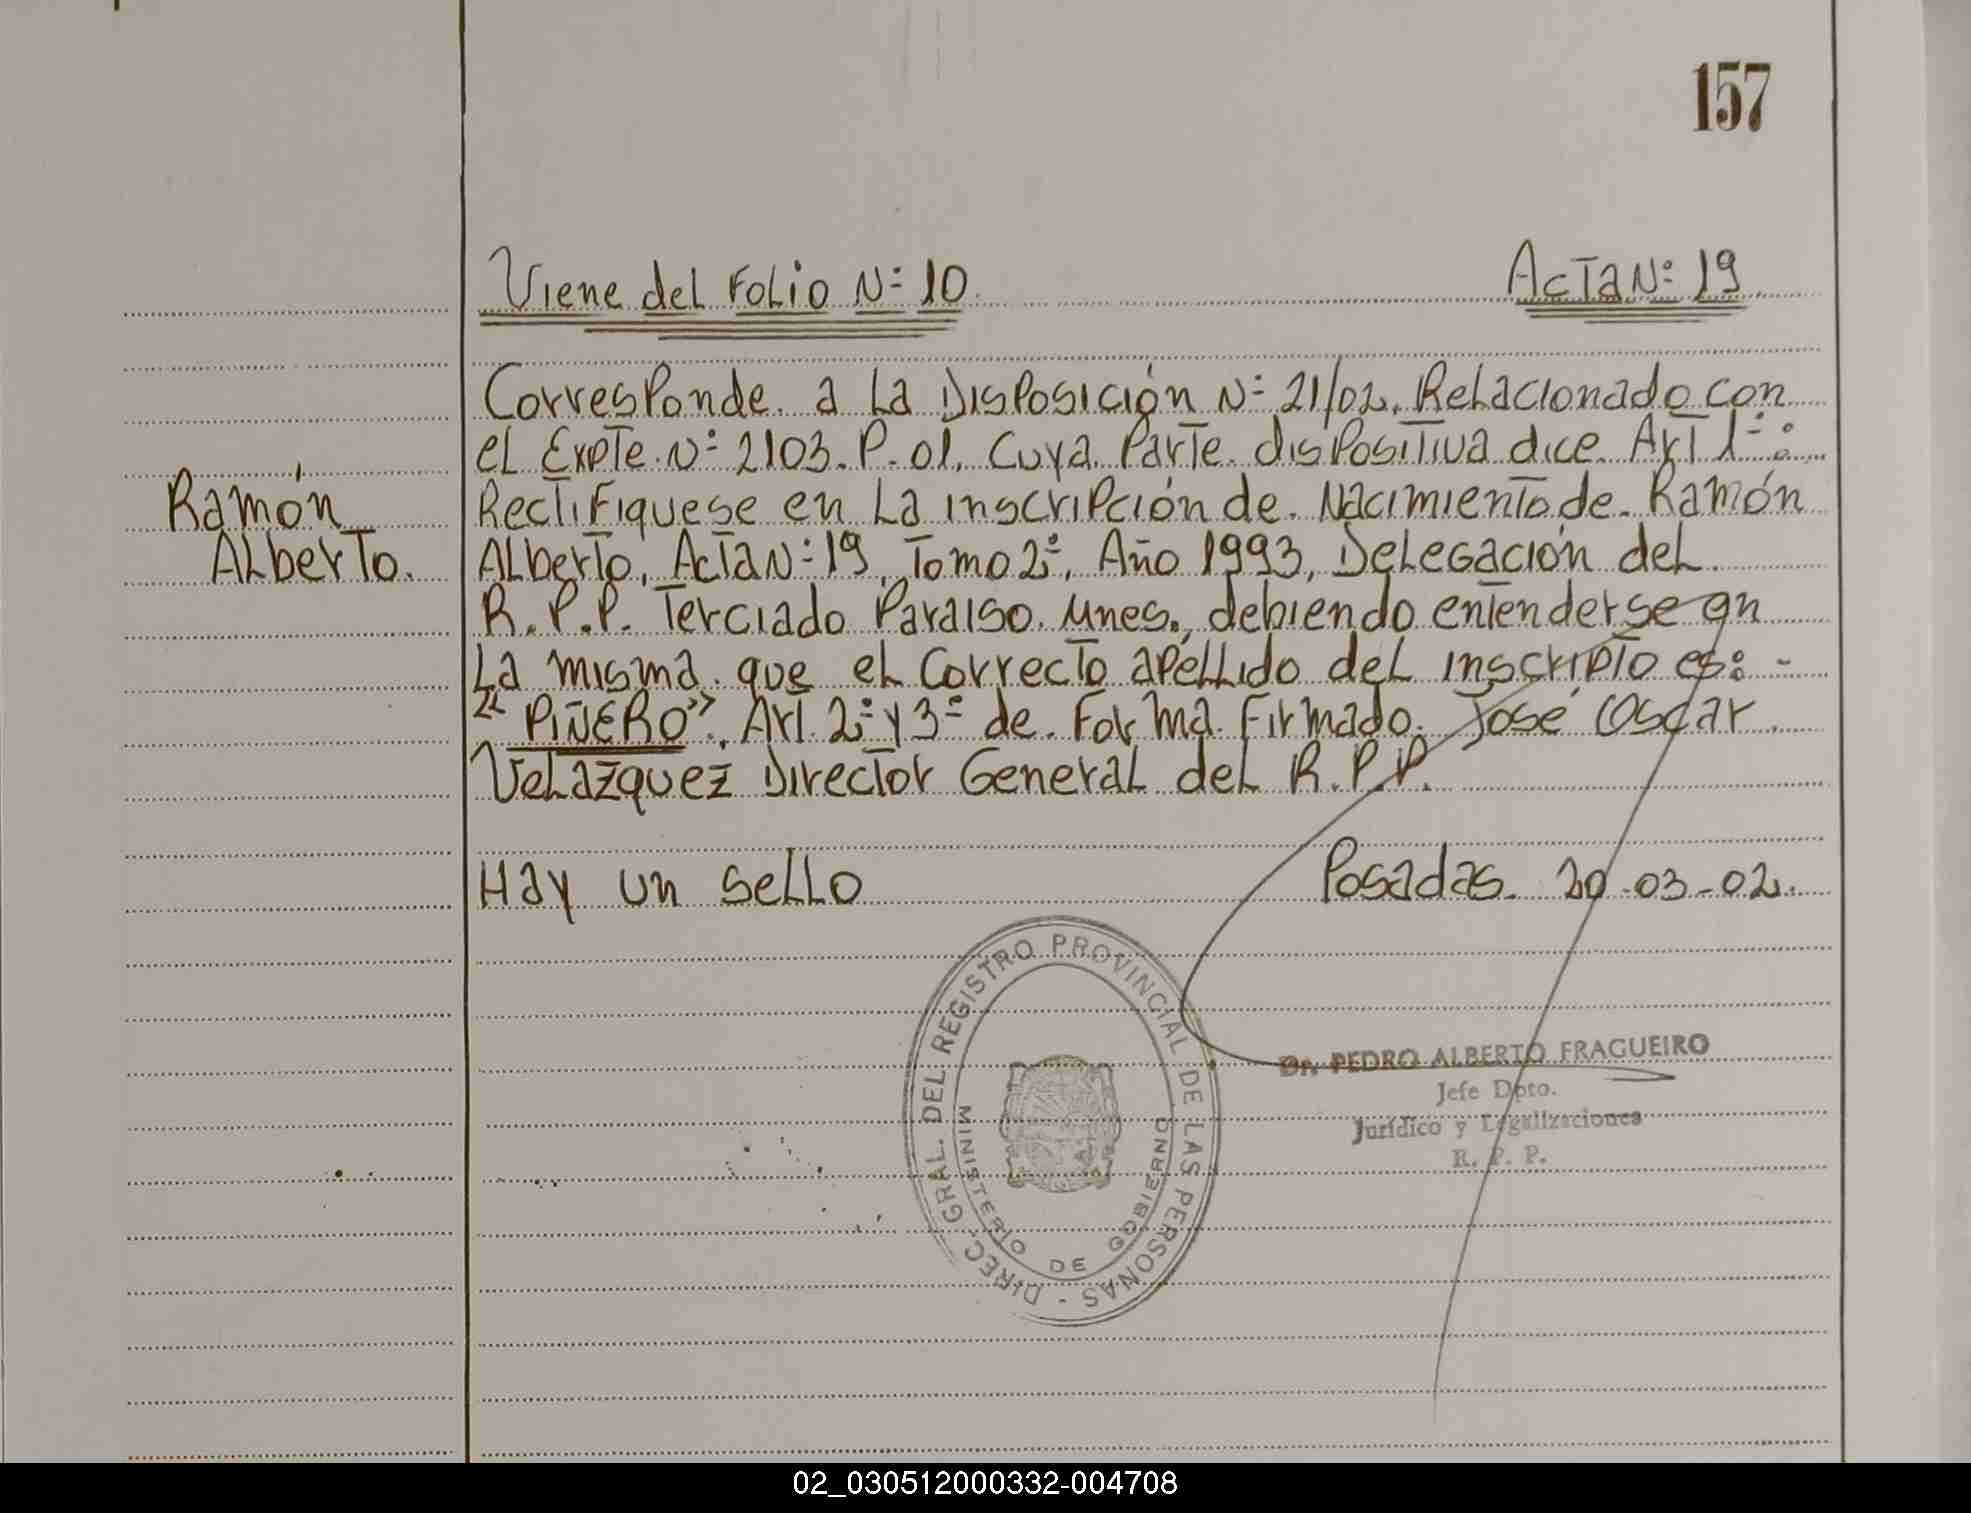 157
Viene del Folio Nº 10. Acta Nº 19
Corresponde a la Disposición Nº 21/02. Relacionado con
el Expte. Nº 2103. P. 01. Cuya Parte dispositiva dice Art 1º:
Ramón
Rectifiquese en la inscripción de Nacimiento de Ramón
Alberto.
Alberto, Acta Nº 19, Tomo 2º, Año 1993, Delegación del
R. P. P. Terciado Paraiso. Mnes., debiendo entenderse en
la misma que el Correcto apellido del inscripto es: -
"PIÑERO"., Art. 2º y 3º de Forma. Firmado. José Oscar
Velazquez Director General del R. P. P.
Hay un sello Posadas. 20-03-02.
DIREC. GRAL. DEL REGISTRO PROVINCIAL DE LAS PERSONAS -
MINISTERIO DE GOBIERNO
Dr. PEDRO ALBERTO FRAGUEIRO
Jefe Dpto.
Jurídico y Legalizaciones
R. P. P.
02_030512000332-004708